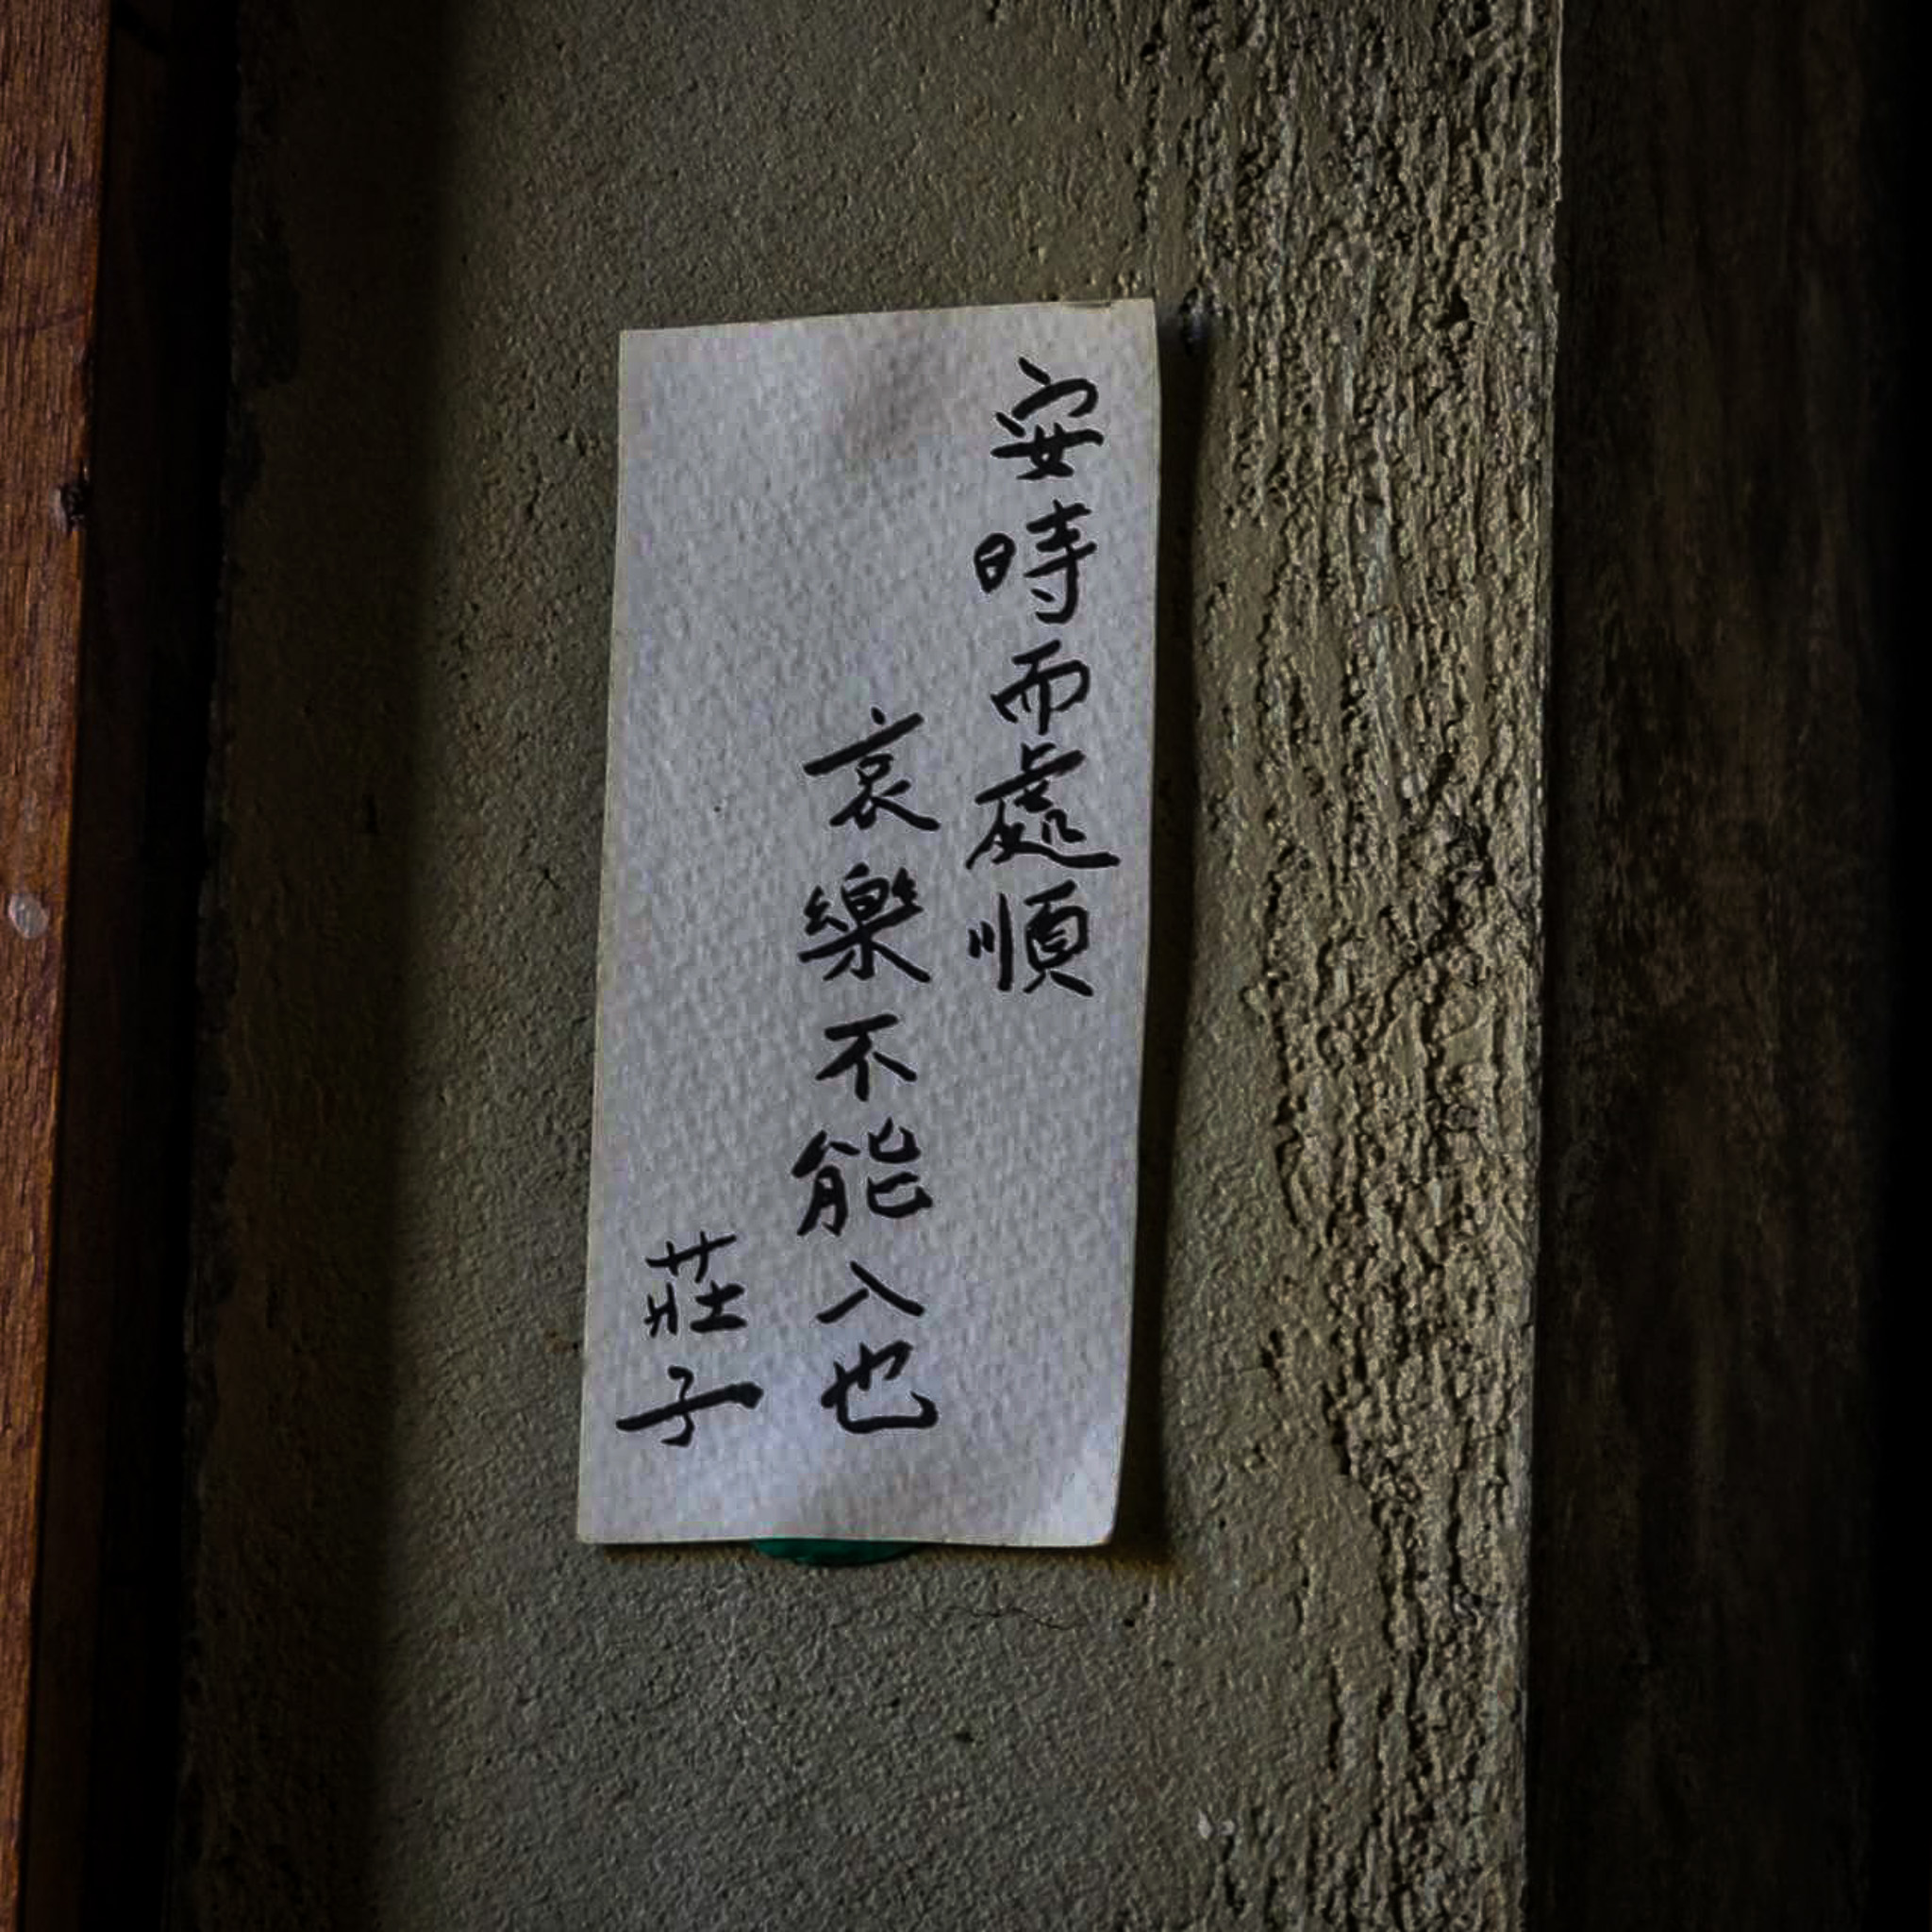 安時而處順
哀樂不能入也
莊子